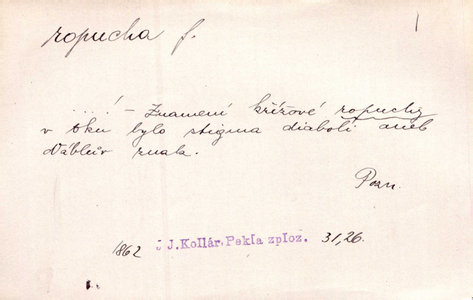 ropucha f.
....! – Znamení křížové ropuchy
v oku bylo stigma diaboli aneb
ďáblův znak.
Pozn.
1862 J J. Kollár Pekla zploz. 31,26.